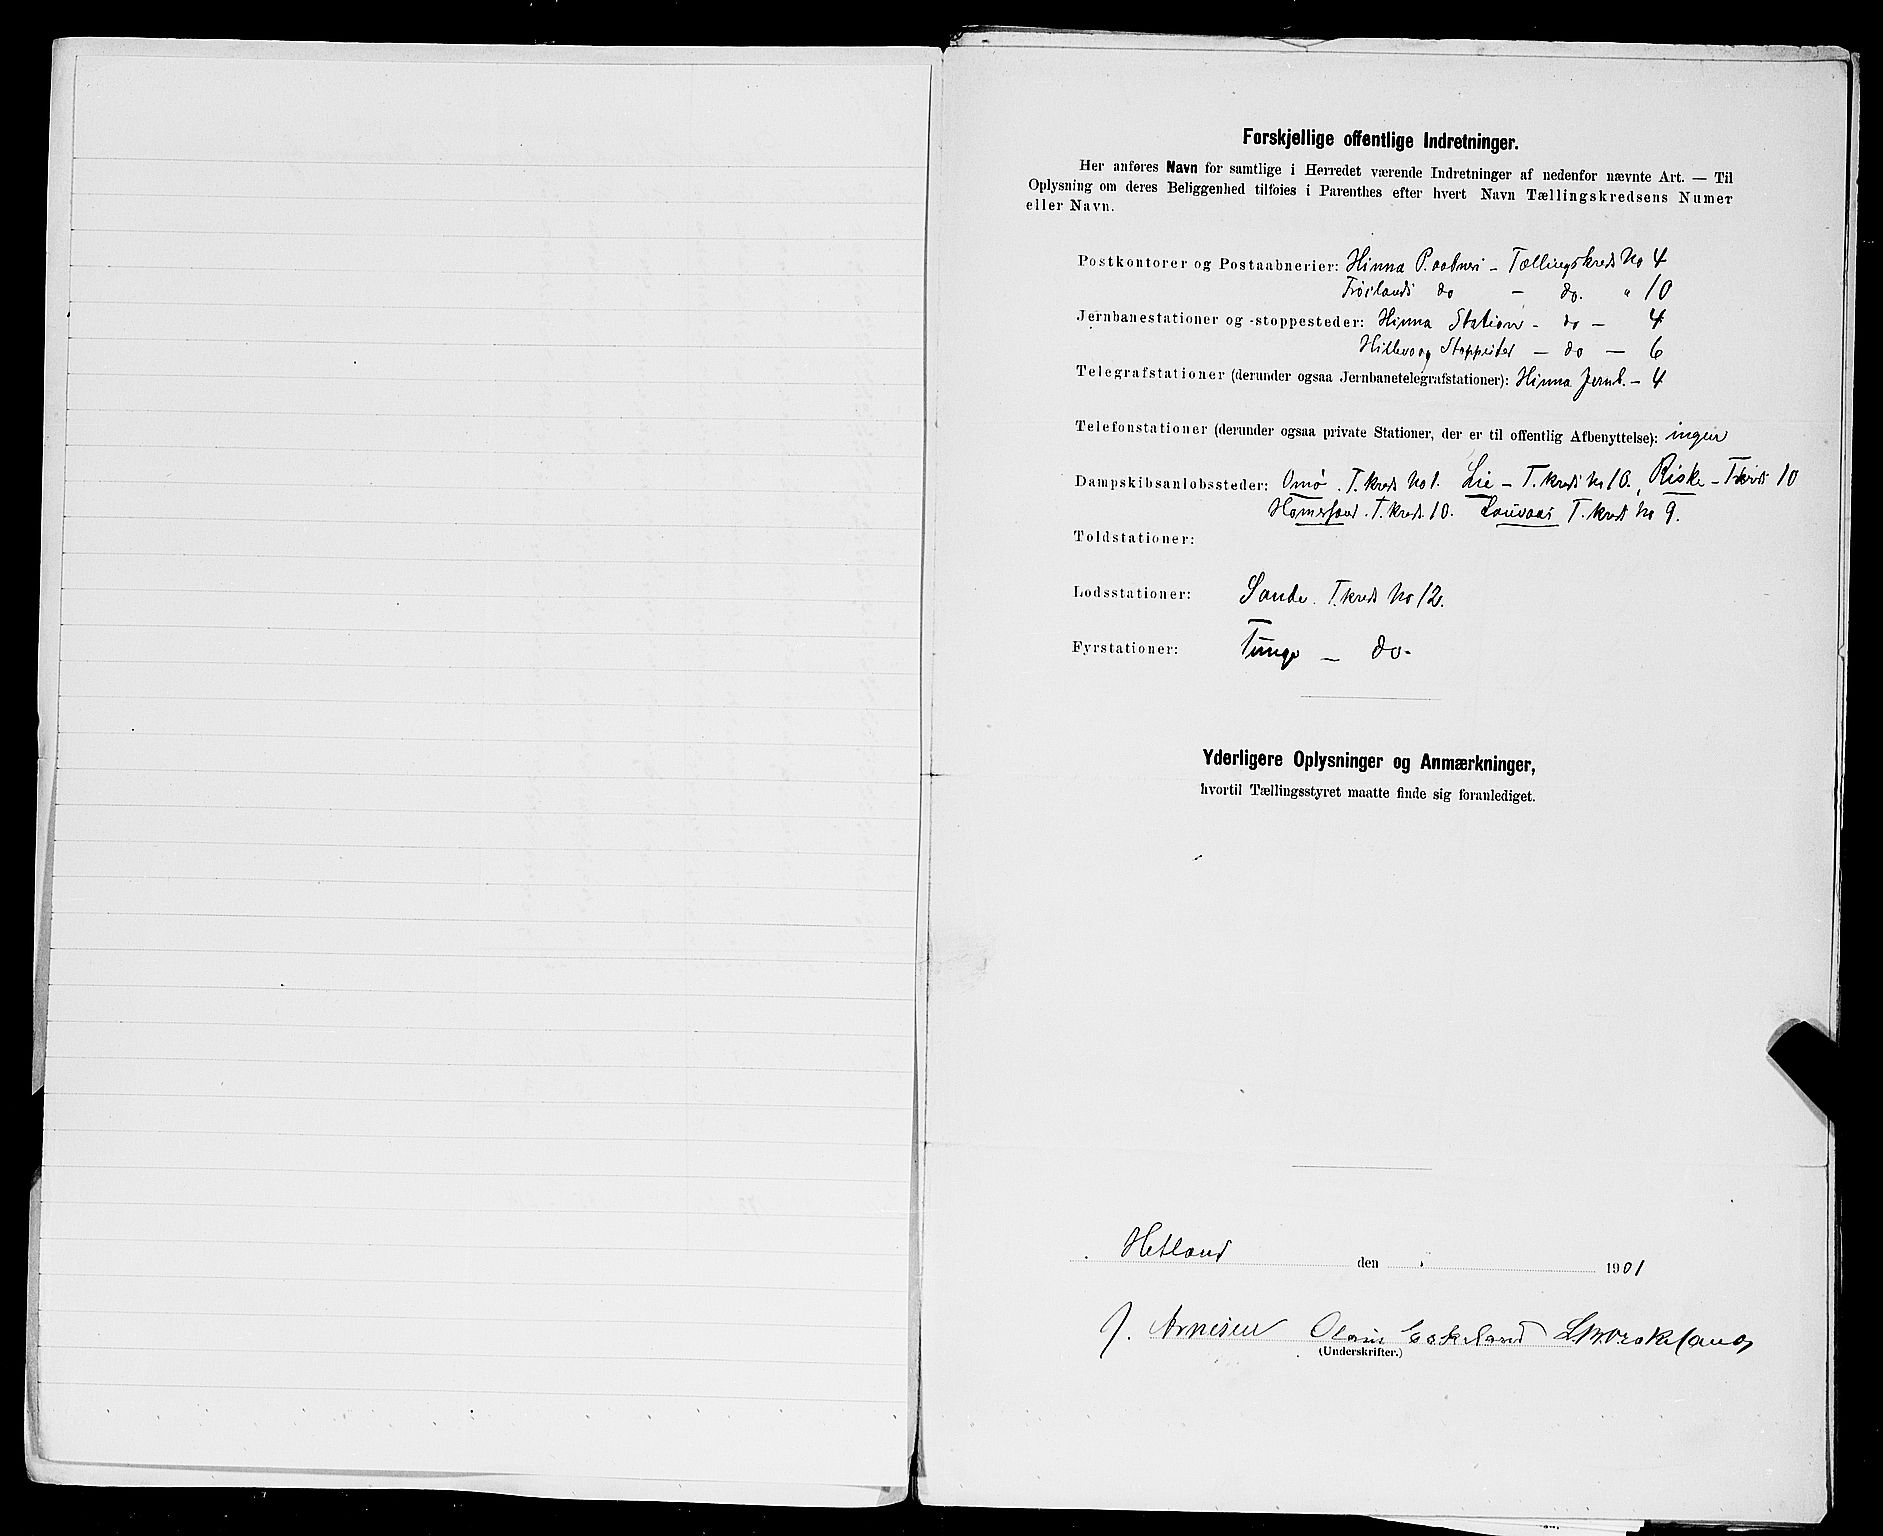 Forskjellige offentlige Indretninger.
Her anføres Navn for samtlige i Herredet værende Indretninger af nedenfor nævnte Art. — Til
Oplysning om deres Beliggenhed tilføies i Parenthes efter hvert Navn Tællingskredsens Numer
eller Navn.
Postkontorer og Postaabnerier: Hinna P.aabneri – Tællingskreds No 4
do — do. " 10
Jernbanestationer og -stoppesteder: Hinna Station – do — 4
Hillevaag Stoppested — do — 6
Telegrafstationer (derunder ogsaa Jernbanetelegrafstationer): Hinna Jernb. – 4
Telefonstationer (derunder ogsaa private Stationer, der er til offentlig Afbenyttelse): ingen
Dampskibsanløbssteder: Omø. T.kreds No 1. Lie – T.kreds No 10., Riske – T.kreds 10
T.kreds 10. T.kreds No 9.
Toldstationer:
Lodsstationer: Sande. T.kreds No 12.
Fyrstationer: Tunge — do-
Yderligere Oplysninger og Anmærkninger,
hvortil Tællingsstyret maatte finde sig foranlediget.
Hetland den 1901
J. Arnesen
(Underskrifter.)